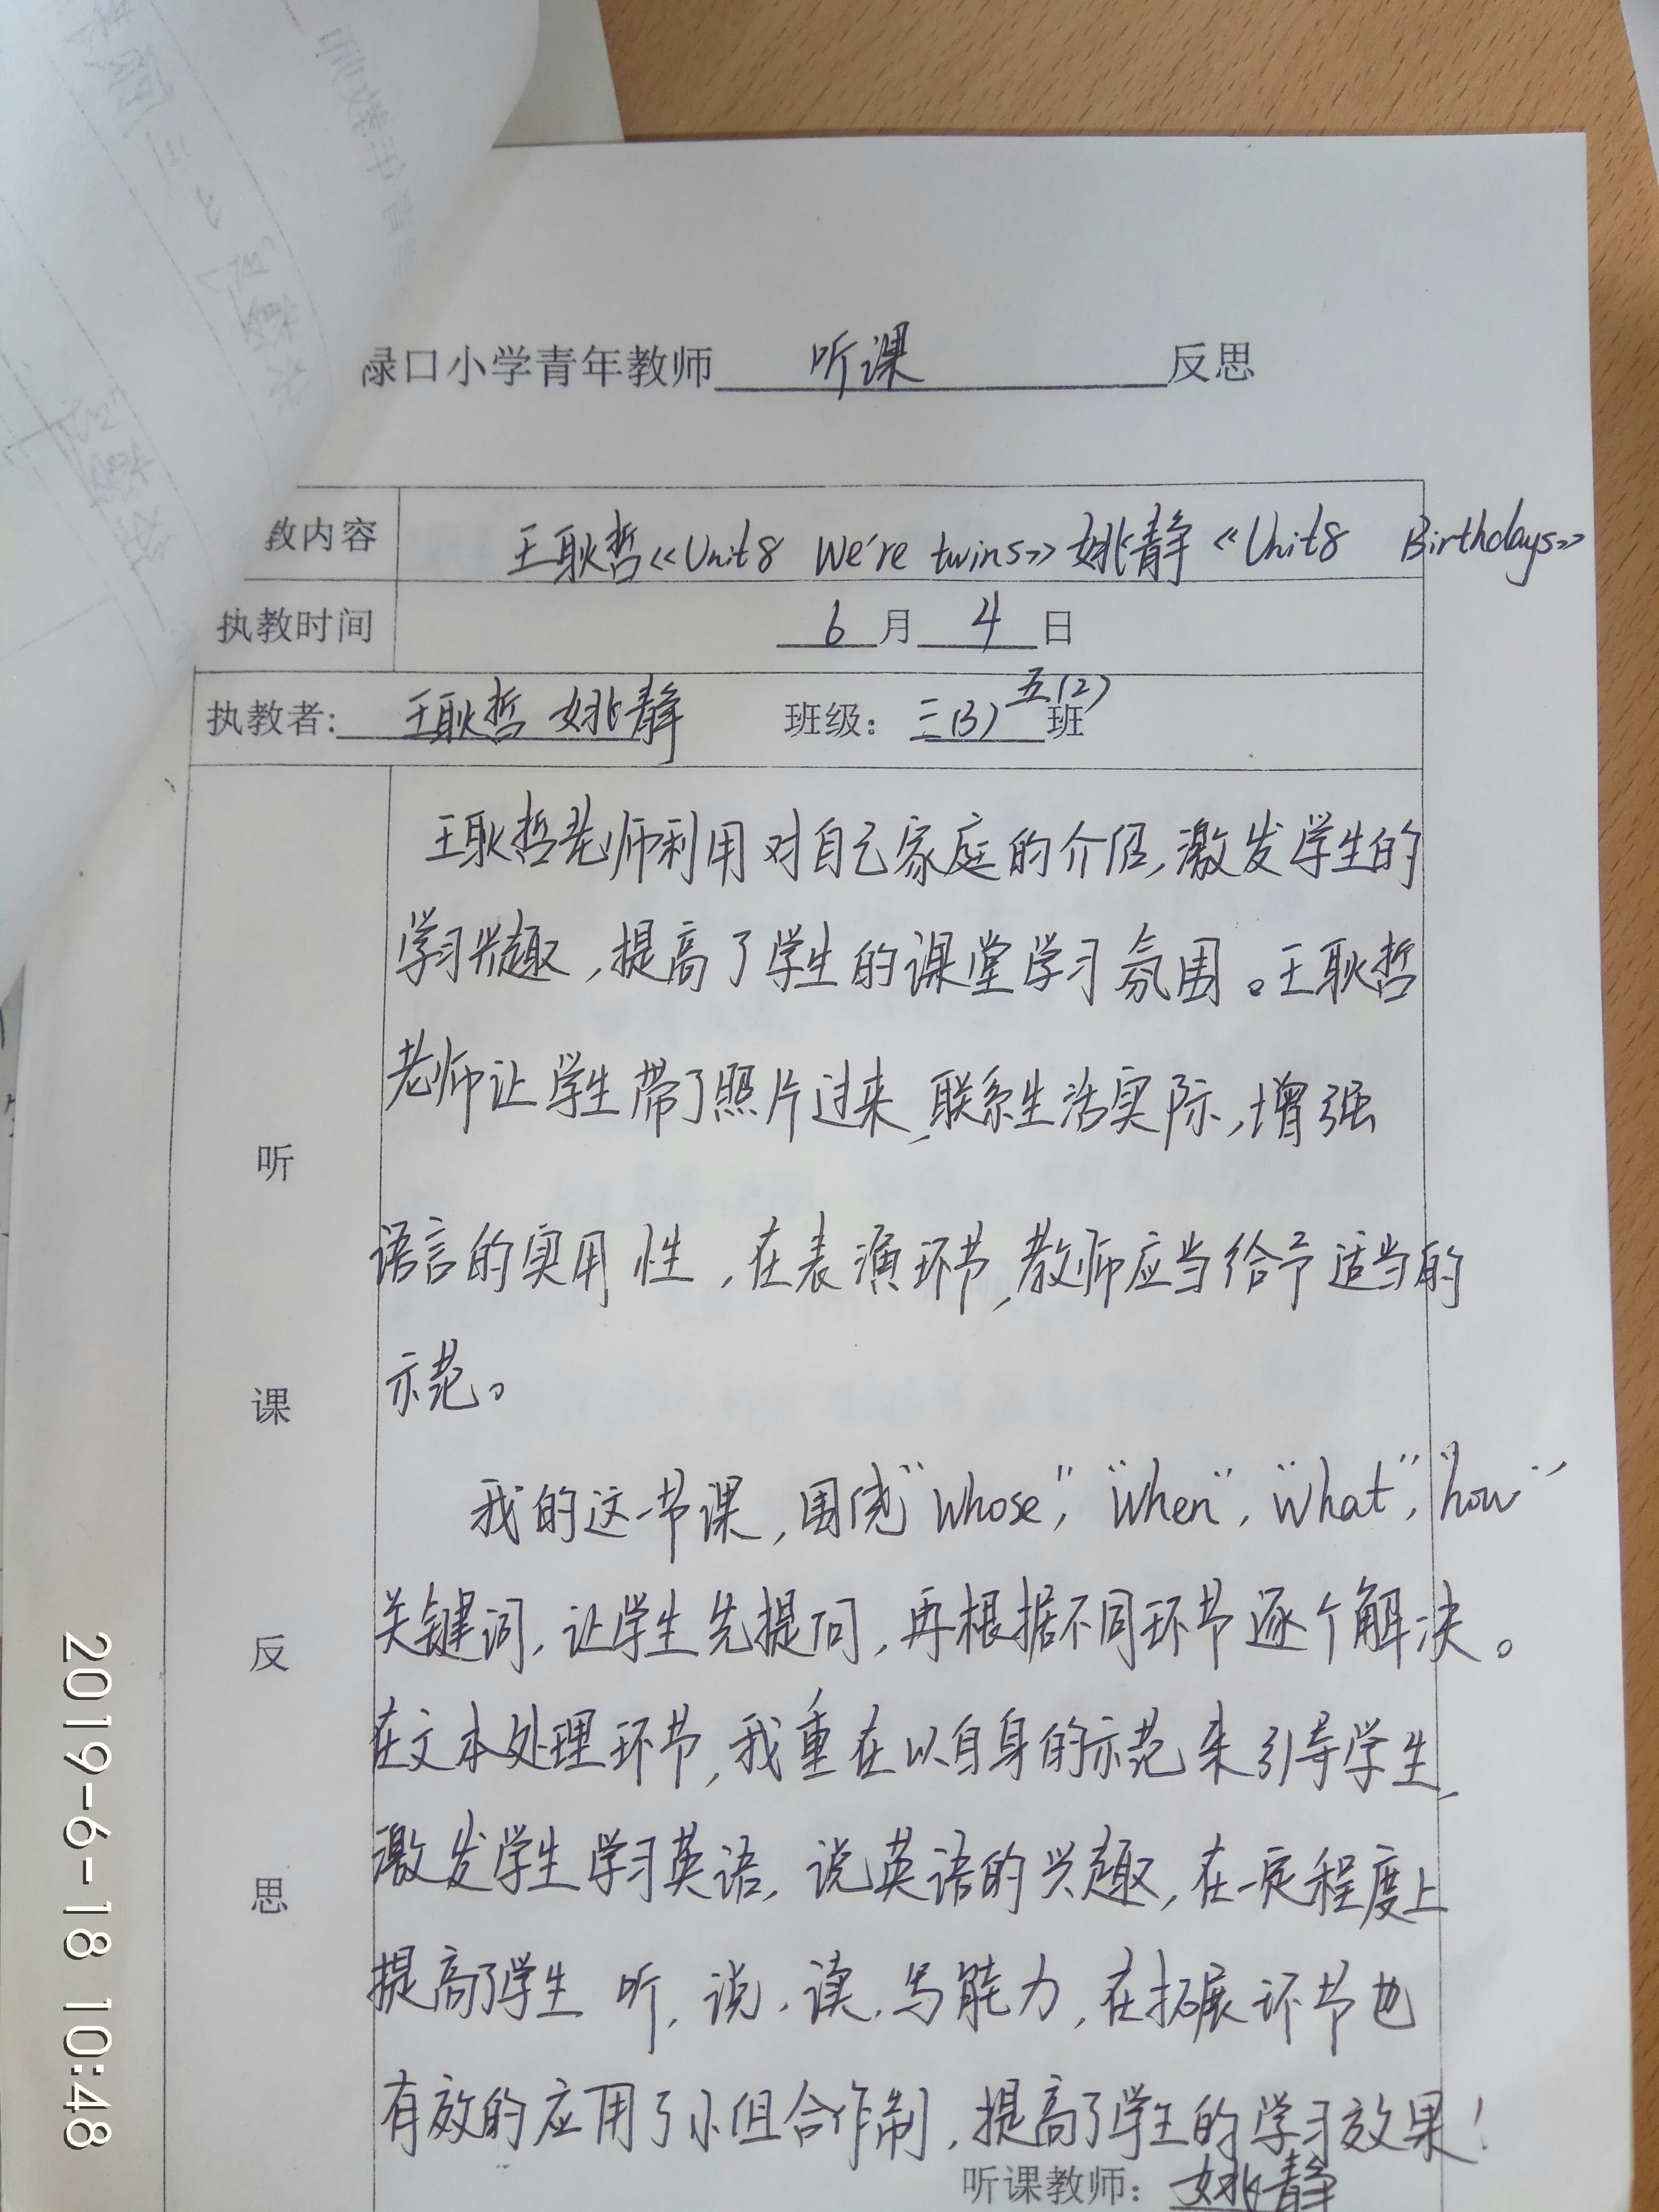 禄口小学青年教师 听课 反思
教内容 王耿哲《Unit8 We're twins》姚静《Unit8 Birthdays》
执教时间 6月4日
执教者: 王耿哲 姚静 班级: 三(3) 五(2) 班
王耿哲老师利用对自己家庭的介绍,激发学生的
学习兴趣,提高了学生的课堂学习氛围。王耿哲
老师让学生带了照片过来,联系生活实际,增强
语言的实用性,在表演环节,教师应当给予适当的
示范。
我的这一节课,围绕"Whose","When","What","how"
关键词,让学生先提问,再根据不同环节逐个解决。
在文本处理环节,我重在以自身的示范来引导学生,
激发学生学习英语,说英语的兴趣,在一定程度上
提高了学生听,说,读,写能力,在拓展环节也
有效的应用了小组合作制,提高了学生的学习效果!
听课教师: 姚静
听课反思
2019-6-18 10:48